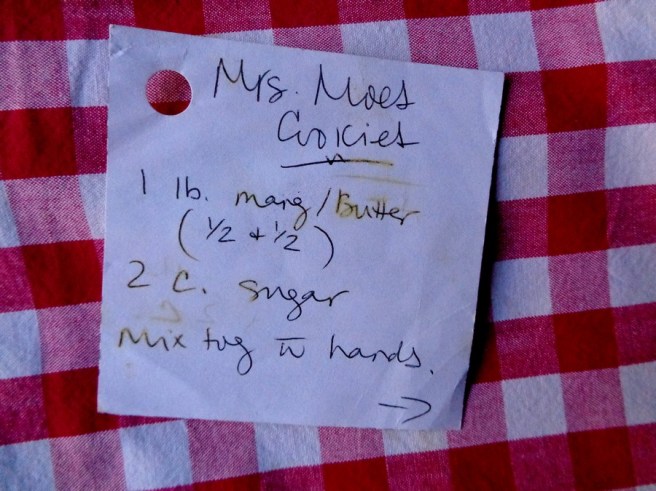 Mrs. Moes
Cookies
1 lb. marg/Butter
(1/2 + 1/2)
2 c. sugar
Mix tog w hands.
→